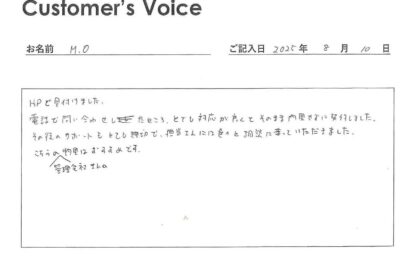 Customer's Voice
お名前 M.O ご記入日 2025年 8月 10日
HPで見付けました。
電話で問い合わせしたところ、とても対応が良くてそのまま内見さらに契約しました。
その後のサポートもとても親切で、担当さんには色々と相談に乗っていただきました。
こちらの物件はおすすめです。
管理会社さんの